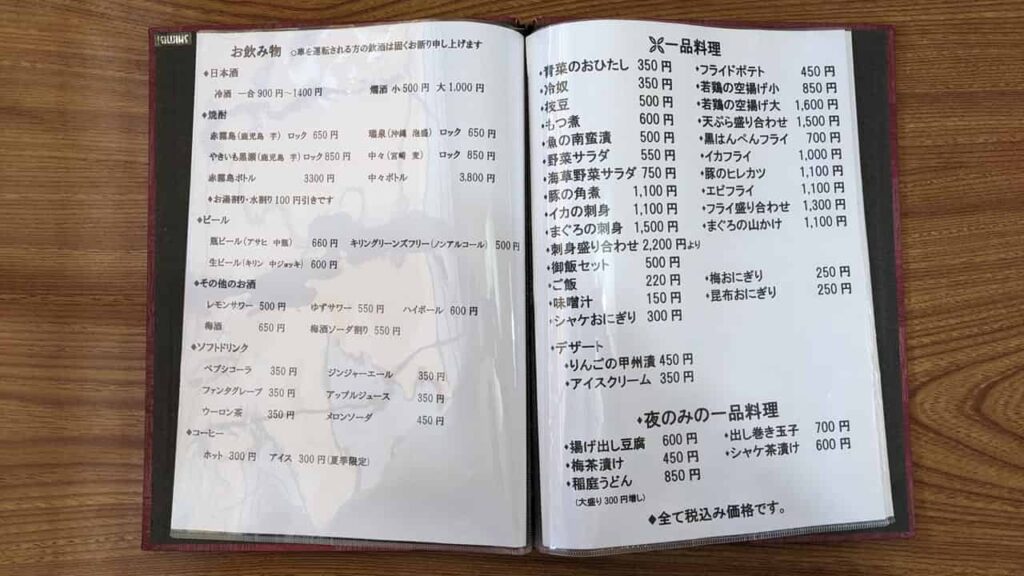 SHIMBI
お飲み物 ○車を運転される方の飲酒は固くお断り申し上げます
♦日本酒
冷酒 一合900円～1400円 燗酒 小500円 大1.000円
♦焼酎
赤霧島(鹿児島 芋) ロック 650円 瑞泉(沖縄 泡盛) ロック 650円
やきいも黒瀬(鹿児島 芋) ロック850円 中々(宮崎 麦) ロック 850円
赤霧島ボトル 3300円 中々ボトル 3.800円
♦お湯割り・水割り100円引きです
♦ビール
瓶ビール(アサヒ 中瓶) 660円 キリングリーンズフリー(ノンアルコール) 500円
生ビール(キリン 中ジョッキ) 600円
♦その他のお酒
レモンサワー 500円 ゆずサワー 550円 ハイボール 600円
梅酒 650円 梅酒ソーダ割り 550円
♦ソフトドリンク
ペプシコーラ 350円 ジンジャーエール 350円
ファンタグレープ 350円 アップルジュース 350円
ウーロン茶 350円 メロンソーダ 450円
♦コーヒー
ホット 300円 アイス 300円(夏季限定)
一品料理
♦青菜のおひたし 350円
♦冷奴 350円
♦枝豆 500円
♦もつ煮 600円
♦魚の南蛮漬 500円
♦野菜サラダ 550円
♦海草野菜サラダ 750円
♦豚の角煮 1,100円
♦イカの刺身 1,100円
♦まぐろの刺身 1,500円
♦刺身盛り合わせ 2,200円より
♦御飯セット 500円
♦ご飯 220円
♦味噌汁 150円
♦シャケおにぎり 300円
♦フライドポテト 450円
♦若鶏の空揚げ小 850円
♦若鶏の空揚げ大 1,600円
♦天ぷら盛り合わせ 1,500円
♦黒はんぺんフライ 700円
♦イカフライ 1,000円
♦豚のヒレカツ 1,100円
♦エビフライ 1,100円
♦フライ盛り合わせ 1,300円
♦まぐろの山かけ 1,100円
♦梅おにぎり 250円
♦昆布おにぎり 250円
♦デザート
♦りんごの甲州漬 450円
♦アイスクリーム 350円
♦夜のみの一品料理
♦揚げ出し豆腐 600円 ♦出し巻き玉子 700円
♦梅茶漬け 450円 ♦シャケ茶漬け 600円
♦稲庭うどん 850円
(大盛り300円増し)
♦全て税込み価格です。